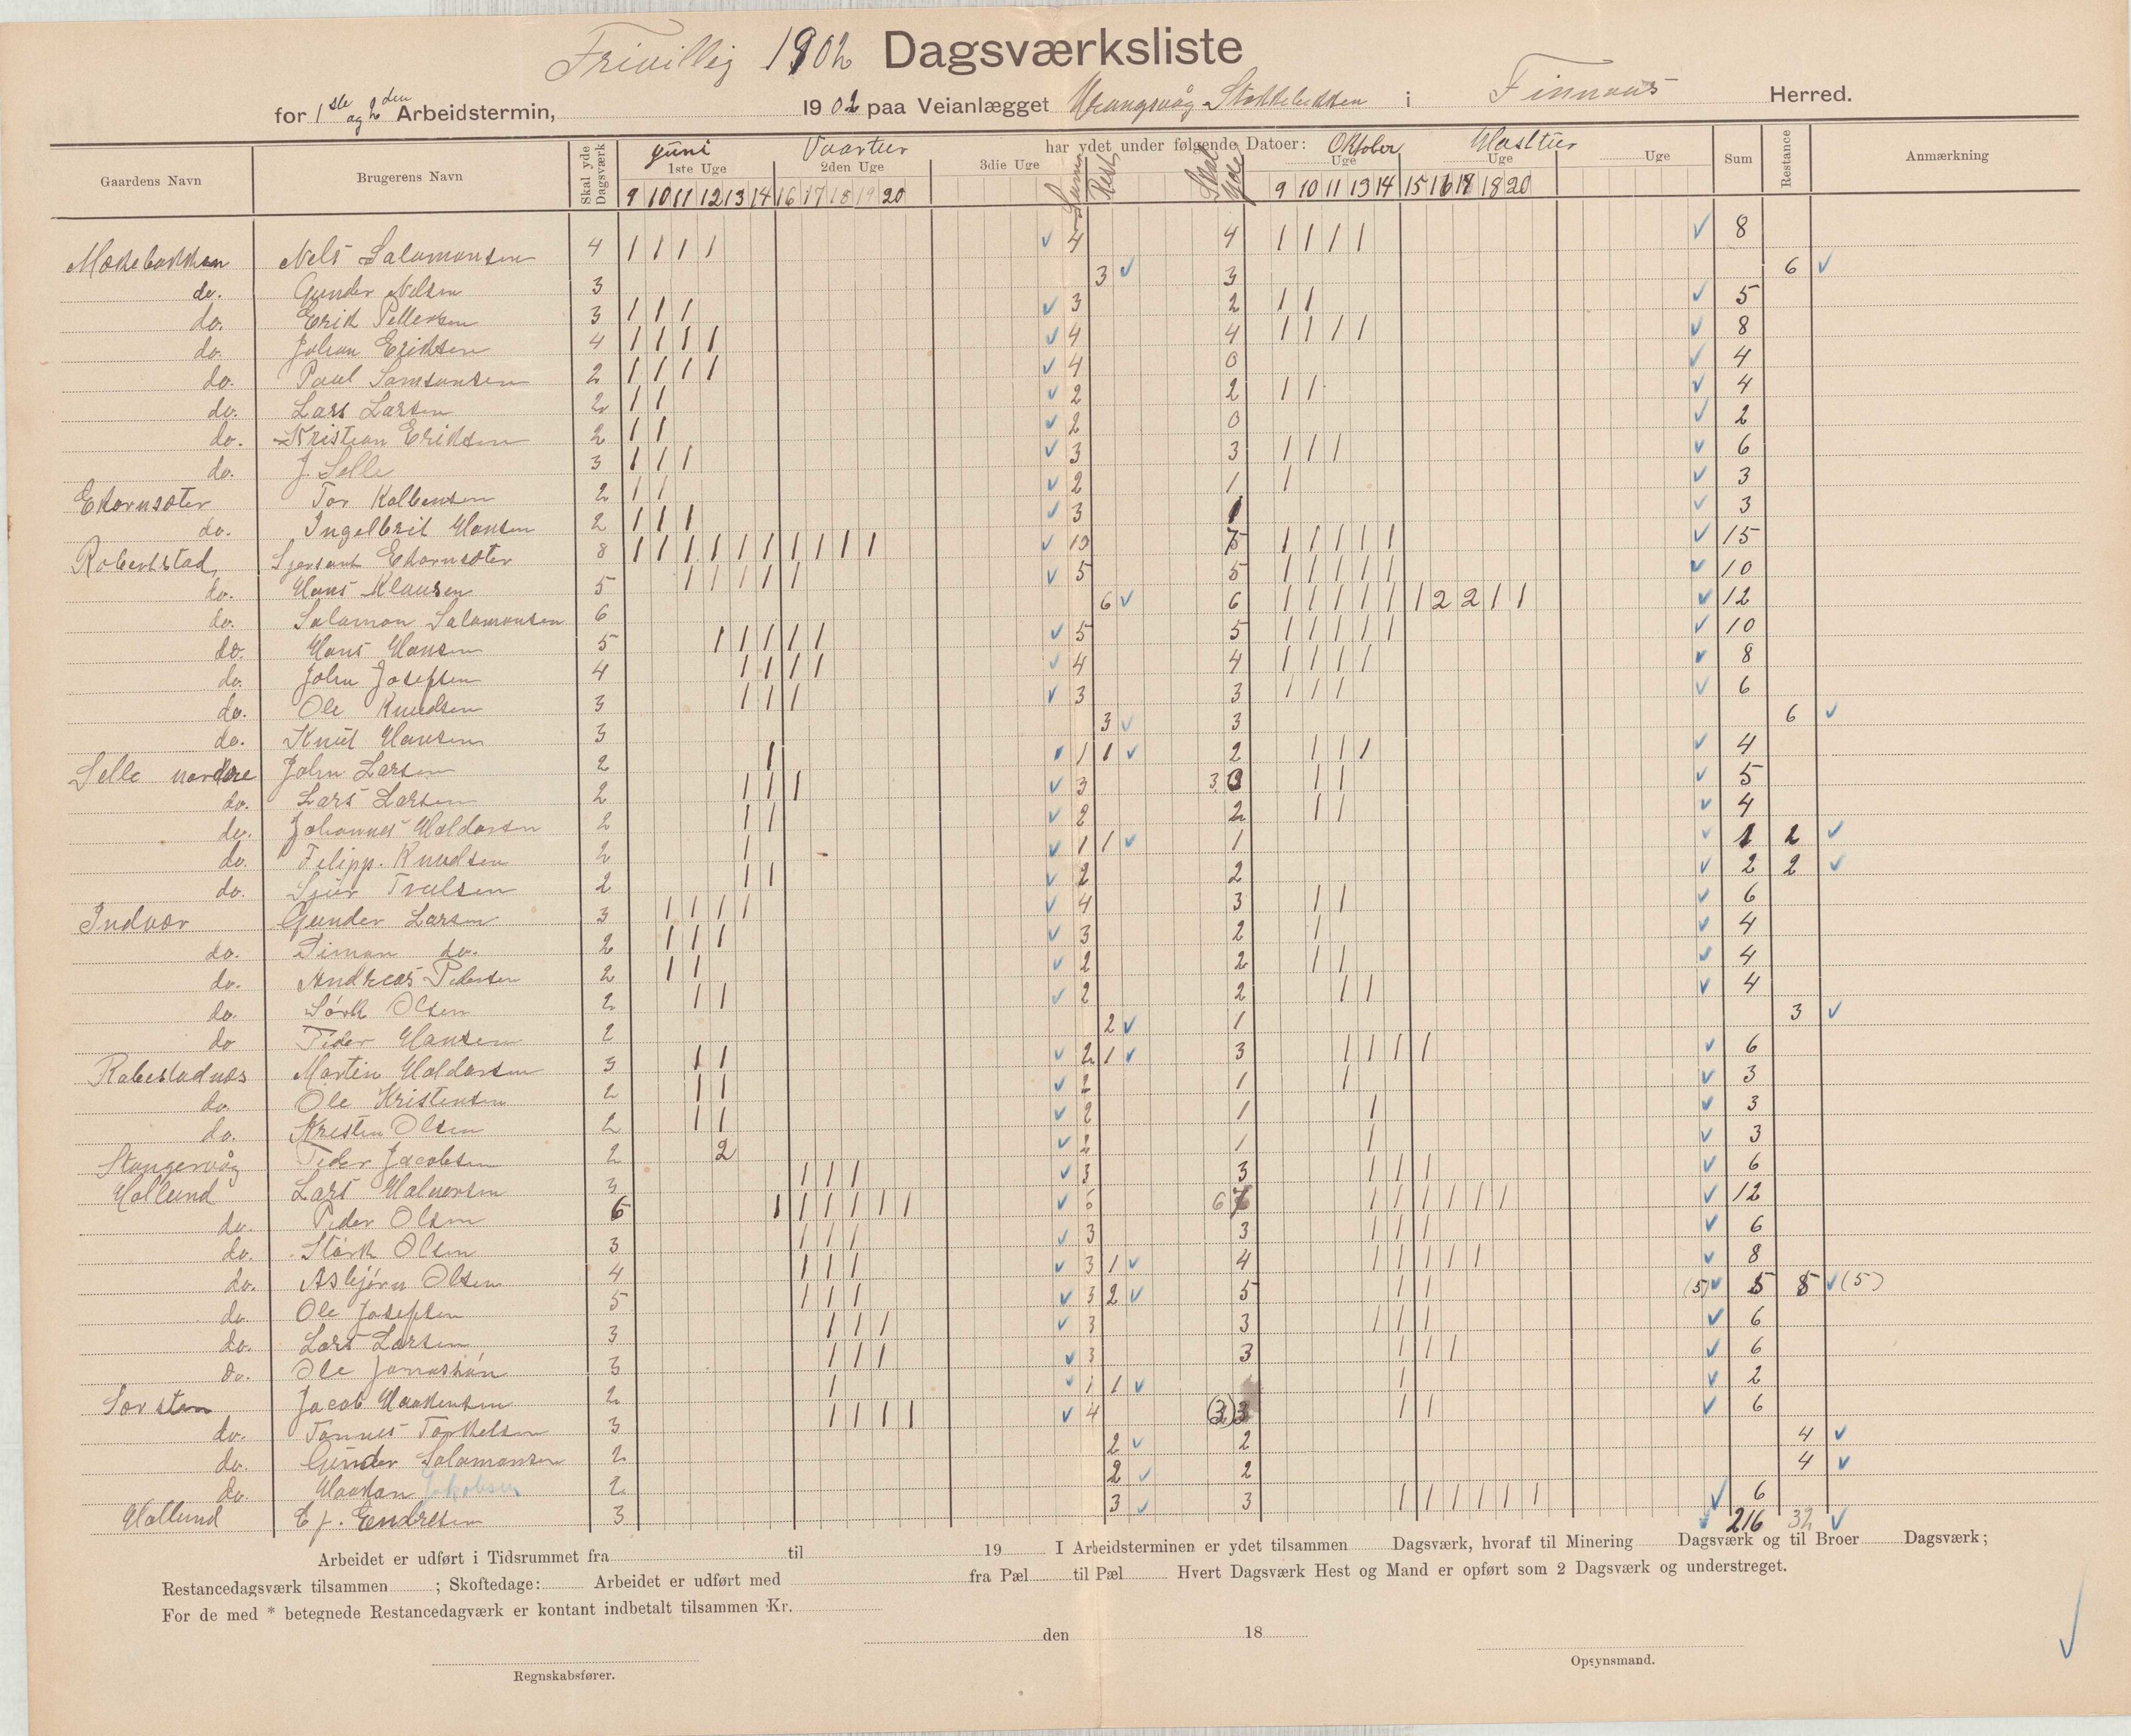 Frivillig 1902 Dagsværksliste
for 1ste og 2den Arbeidstermin, 1902 paa Veianlægget Vrangsvåg Stokkebekken i Finnaas Herred.
Gaardens Navn Brugerens Navn Skal yde Dagsværk Juni Vaartur har ydet under følgende Datoer: Oktober Hasttur Sum Restance Anmærkning
1ste Uge 2den Uge 3die Uge Sum Rest Skal yde Uge Uge Uge
9 10 11 12 13 14 16 17 18 19 20 9 10 11 13 14 15 16 17 18 20
Mækebakken Nels Salamonsen 4 1 1 1 1 4 4 1 1 1 1 8
do. Gunder Nelsen 3 3 3 6
do. Erik Pettersen 3 1 1 1 3 2 1 1 5
do. Johan Eriksen 4 1 1 1 1 4 4 1 1 1 1 8
do. Paul Samsonsen 2 1 1 1 1 4 0 4
do. Lars Larsen 2 1 1 2 2 1 1 4
do. Kristian Eriksen 2 1 1 2 0 2
do. J. Selle 3 1 1 1 3 3 1 1 1 6
Ekornsæter Tor Kolbensen 2 1 1 2 1 1 3
do. Ingelbrit Hansen 2 1 1 1 3 1 3
Robertstad Sjersant Ekornsæter 8 1 1 1 1 1 1 1 1 1 1 10 5 1 1 1 1 1 15
do. Hans Klausen 5 1 1 1 1 1 5 5 1 1 1 1 1 10
do. Salamon Salamonsen 6 6 6 1 1 1 1 1 1 2 2 1 1 12
do. Hans Hansen 5 1 1 1 1 1 5 5 1 1 1 1 1 10
do. John Josefsen 4 1 1 1 1 4 4 1 1 1 1 8
do. Ole Knudsen 3 1 1 1 3 3 1 1 1 6
do. Knut Hansen 3 3 3 6
Selle nordre John Larsen 2 1 1 1 2 1 1 1 4
do. Lars Larsen 2 1 1 1 3 3 0 1 1 5
do. Johannes Haldorsen 2 1 1 2 2 1 1 4
do. Filipp. Knudsen 2 1 1 1 1 1 2
do. Sjur Trulsen 2 1 1 2 2 2 2
Indvær Gunder Larsen 3 1 1 1 1 4 3 1 1 6
do. Siman do. 2 1 1 1 3 2 1 4
do. Andreas Pedersen 2 1 1 2 2 1 1 4
do. Størk Olsen 2 1 1 2 2 1 1 4
do Peder Hansen 2 2 1 3
Robestadnæs Martin Haldorsen 3 1 1 2 1 3 1 1 1 1 6
do. Ole Kristensen 2 1 1 2 1 1 3
do. Kristen Olsen 2 1 1 2 1 1 3
Stangervåg Peder Jacobsen 2 2 2 1 1 3
Hollund Lars Halvorsen 3 1 1 1 3 3 1 1 1 6
do. Peder Olsen 6 1 1 1 1 1 1 6 6 1 1 1 1 1 1 12
do. Størk Olsen 3 1 1 1 3 3 1 1 1 6
do. Asbjørn Olsen 4 1 1 1 3 1 4 1 1 1 1 1 8
do. Ole Josefsen 5 1 1 1 3 2 5 1 1 (5) 5 5 (5)
do. Lars Larsen 3 1 1 1 3 3 1 1 1 6
do. Ole Jonassøn 3 1 1 1 3 3 1 1 1 6
Sorsten Jacob Haakensen 2 1 1 1 1 2
do. Tønnes Torkelsen 3 1 1 1 1 4 (3) 3 1 1 6
do. Gunder Salamonsen 2 2 2 4
do Haakon Jakobsen 2 2 2 4
Hollund E J. Endresen 3 3 3 1 1 1 1 1 1 6
216 32
Arbeidet er udført i Tidsrummet fra til 19 I Arbeidsterminen er ydet tilsammen Dagsværk, hvoraf til Minering Dagsværk og til Broer Dagsværk;
Restancedagsværk tilsammen ; Skoftedage: Arbeidet er udført med fra Pæl til Pæl Hvert Dagsværk Hest og Mand er opført som 2 Dagsværk og understreget.
For de med * betegnede Restancedagværk er kontant indbetalt tilsammen Kr.
den 18
Regnskabsfører. Opsynsmand.